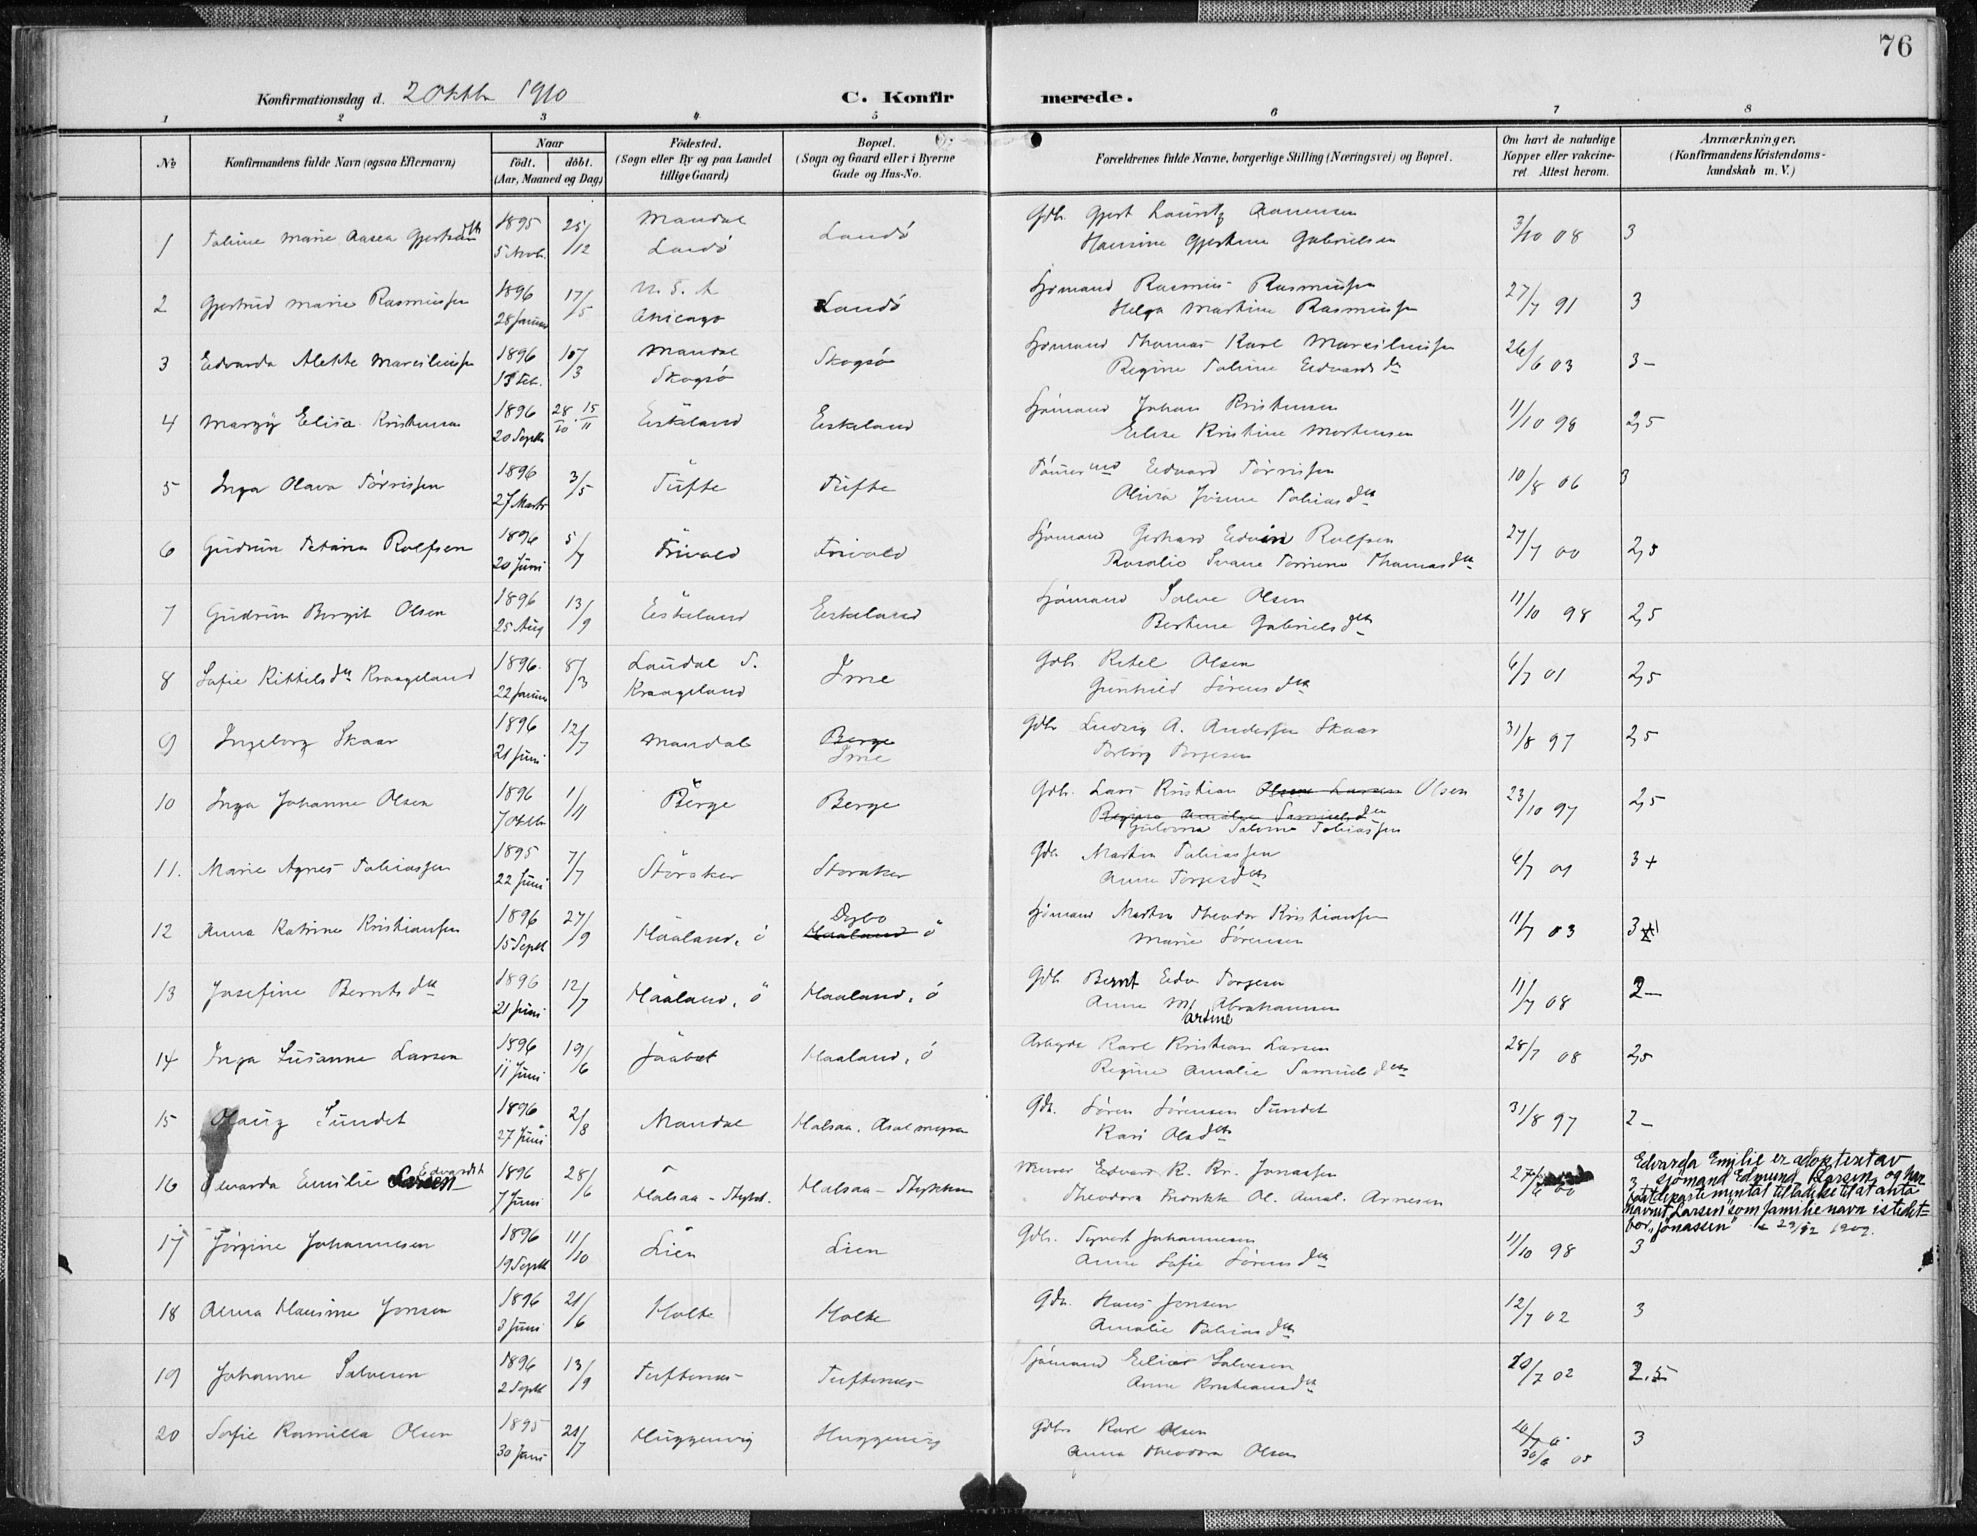 76
Konfirmationsdag d. 2 Oktbr 1910
C. Konfirmerede.
1 2 3 4 5 6 7 8
№ Konfirmandens fulde Navn (ogsaa Efternavn) Naar födt. döbt. (Aar, Maaned og Dag) Födested. (Sogn eller By og paa Landet tillige Gaard) Bopæl. (Sogn og Gaard eller i Byerne Gade og Hus-No. Forældrenes fulde Navne, borgerlige Stilling (Næringsvei) og Bopæl. Om havt de naturlige Kopper eller vakcineret Attest herom. Anmærkninger. (Konfirmandens Kristendomskundskab m. V.)
1 Taline Marie Aasea 1895 5 Novb. 25/12 Mandal Landö Landö Gdb. Gjert Lauritz Aanensen
Hansine Gjertine Gabrielsen 3/10 08 3
2 Gjertrud Marie Rasmussen 1896 28 Januar 17/5 U.S.A. Chicago Landö Sjömand Rasmus Rasmussen
Helga Martine Rasmussen 27/7 91 3
3 Edvarda Alette Marsiliussen 1896 13 Feb. 15/3 Mandal Skogsö Skogsö Sjömand Thomas Karl Marsiliussen
Regine Taline Edvardsdtr 26/6 03 3-
4 Margit Elisa Kristensen 1896 20 Septb 28/10 15/11 Eskeland Eskeland Sjömand Johan Kristensen
Elise Kristine Mortensen 11/10 98 2,5
5 Inga Olava Törrissen 1896 27 Marts 3/5 Tufte Tufte Tömmermd Edvard Törrissen
Olivia Josine Tobiasdtr 10/8 06 3
6 Gudrun Petrina Rolfsen 1896 20 Juni 5/7 Trivold Trivold Sjömand Gerhard Edvin Rolfsen
Rosalie Svane Tomine Thomasdtr 27/7 00 2,5
7 Gudrun Bergit Olsen 1896 25 Aug 13/9 Eskeland Eskeland Sjömand Salve Olsen
Bertine Gabrielsdtr 11/10 98 2,5
8 Sofie Kittilsdtr Kraageland 1896 22 Januar 8/3 Laudal S. Kraageland Ime Gdb. Ketel Olsen
Gunhild Sörensdtr 6/7 01 2,5
9 Ingeborg Skaar 1896 21 Juni 12/7 Mandal Berge Ime Gdb Ludvig A. Andersen Skaar
Torborg Borgesen 31/8 97 2,5
10 Inga Johanne Olsen 1896 7 Oktbr 1/11 Berge Berge Gdb. Lars Kristian Olsen Larsen Olsen
Regine Amalie Samuelsdtr
Gulovna Salome Tobiassen 23/10 97 2,5
11. Marie Agnes Tobiassen 1895 22 Juni 7/7 Störaker Storaker Gdb Martin Tobiassen
Anne Torgesdtr 6/7 01 3+
12 Anna Katrine Kristiansen 1896 15 Septb 27/9 Haaland, ö Dybo Haaland ö Sjömand Martin Theodor Kristiansen
Marie Sörensen 11/7 03 3
13 Josefine Berntsdtr 1896 21 Juni 12/7 Haaland, ö Haaland, ö Gdb Bernt Edv Torgesen
Anne Martine Abrahamsen 11/7 08 2-
14 Inga Susanne Larsen 1896 11 Juni 19/6 Jaabæk Haaland, ö Arbeyder Karl Kristian Larsen
Regine Amalie Samuelsdtr 28/7 08 2,5
15 Olaug Sundet 1896 27 Juni 2/8 Mandal Halsaa, Asalmyra Gdb. Sören Sörensen Sundet
Kari Olsdtr 31/8 97 2-
16 Edvarda Emilie Larsen Edvardsdt 1896 7 Juni 28/6 Halsaa - Stykk. Halsaa - Stykken Murer Edvard K. Kr. Jonassen
Theodora Fredrikke Ol. Amal. Arnesen 27/6 00 3
Edvarda Emilie er adoptert av
sjömand Edmund Larsen og har
faat departementets tilladelse til at anta
navnet "Larsen" som familienavn istedet-
for "Jonassen" 29/12 1909.
17 Jörgine Johannesen 1896 19 Septb 11/10 Lien Lien Gdb. Syvert Johannesen
Anne Sofie Sörensdtr 11/10 98 3
18 Anna Hansine Jonsen 1896 3 Juni 21/6 Holte Holte Gdb. Hans Jonsen
Amalie Tobiasdtr 12/7 02 3
19 Johanne Salvesen 1896 2 Septb 13/9 Tuftenes Tuftenes Sjömand Elias Salvesen
Anne Kristiansdtr 20/7 02 2,5
20 Sofie Kamilla Olsen 1895 30 Juni 21/7 Huggenvig Huggenvig Gdbr Karl Olsen
Anna Theodora Olsen 30/6 05 3